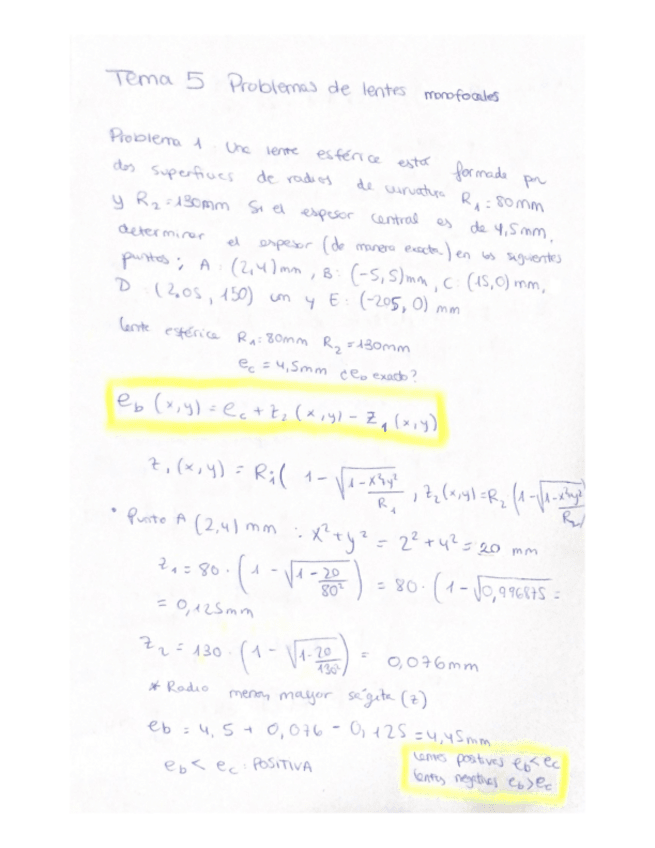 Tema 5 Problemas de lentes monofocales
Problema 1. Una lente esférica está formada por
dos superficies de radios de curvatura R₁ = 80mm
y R₂ = 130mm Si el espesor central es de 4,5mm,
determinar el espesor (de manera exacta) en los siguientes
puntos; A: (2,4)mm, B: (-5,5)mm, C: (15,0)mm,
D: (2,05, 150) cm y E: (-205, 0) mm
lente esférica R₁ = 80mm R₂ = 130mm
ec = 4,5mm ¿eb exacto?
eb (x,y) = ec + z₂ (x,y) - z₁ (x,y)
z₁ (x,y) = R₁ ( 1 - √1-x²+y²/R₁ , z₂(x,y) = R₂ (1-√1-x²+y²/R₂)
• Punto A (2,4) mm : x² + y² = 2² + 4² = 20 mm
z₁ = 80 · ( 1 - √1-20/80² ) = 80 · (1 - √0,996875 =
= 0,125mm
z₂ = 130 · (1 - √1-20/130² ) = 0,076mm
* Radio menor mayor ságita (z)
eb = 4,5 + 0,076 - 0,125 = 4,45mm
eb < ec : POSITIVA
lentes positivas eb < ec
lentes negativas eb > ec